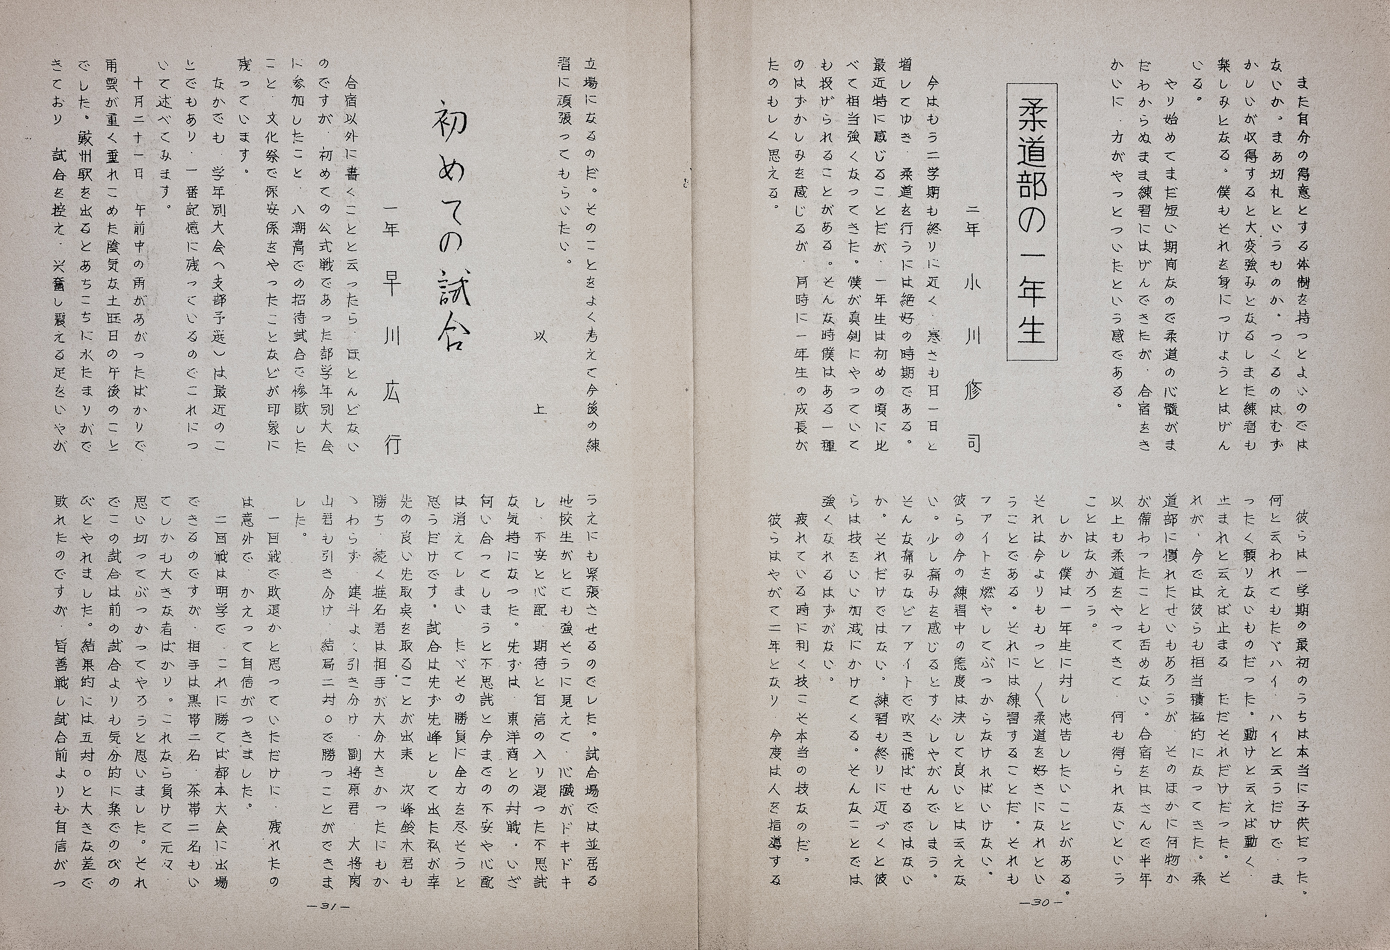 また自分の得意とする体制を持つとよいのでは
ないか。まあ切れというものか、つくるのはむず
かしいが収得すると大変強みとなるしまた練習も
楽しみとなる。僕もそれを身につけようとはげん
いる。
やり始めてまだ短い期間なので柔道の心髄がま
だわからぬまま練習にはげんできたが、合宿をき
かいに、力がやっとついたという感である。
柔道部の一年生
二年 小川修司
今はもう二学期も終りに近く、寒さも日一日と
増してゆき、柔道を行うには絶好の時期である。
最近特に感じることだが、一年生は初めの頃に比
べて相当強くなってきた。僕が真剣にやっていて
も投げられることがある。そんな時僕はある一種
のはずかしみを感じるが、同時に一年生の成長が
たのもしく思える。
彼らは一学期の最初のうちは本当に子供だった。
何と云われてもたゞハイ、ハイと云うだけで、ま
ったく頼りないものだった。動けと云えば動く、
止まれと云えば止まる、ただそれだけだった。そ
れが、今では彼らも相当積極的になってきた。柔
道部に慣れたせいもあろうが、そのほかに何物か
が備わったことも否めない。合宿をはさんで半年
以上も柔道をやってきて、何も得られないという
ことはなかろう。
しかし僕は一年生に対し忠告したいことがある。
それは今よりももっと〳〵柔道を好きになれとい
うことである。それには練習することだ。それも
ファイトを燃やしてぶつからなければいけない。
彼らの今の練習中の態度は決して良いとは云えな
い。少し痛みを感じるとすぐしゃがんでしまう。
そんな痛みなどファイトで吹き飛ばせるではない
か。それだけではない。練習も終りに近づくと彼
らは技をいい加減にかけてくる。そんなことでは
強くなれるはずがない。
疲れている時に利く技こそ本当の技なのだ。
彼らはやがて二年となり、今度は人を指導する
—30—
立場になるのだ。そのことをよく考えて今後の練
習に頑張ってもらいたい。
以上
初めての試合
一年 早川広行
合宿以外に書くことと云ったら、ほとんどない
のですが、初めての公式戦であった部学年別大会
に参加したこと、八潮高での招待試合で惨敗した
こと、文化祭で保安係をやったことなどが印象に
残っています。
なかでも、学年別大会(支部予選)は最近のこ
とでもあり、一番記憶に残っているのでこれにつ
いて述べてみます。
十月二十一日、午前中の雨があがったばかりで
雨雲が重く重れこめた陰気な土曜日の午後のこと
でした。鮫州駅を出るとあちこちに水たまりがで
きており、試合を控え、興奮し震える足をいやが
うえにも緊張させるのでした。試合場では並居る
他校生がとても強そうに見えて、心臓がドキドキ
し、不安と心配、期待と自信の入り混った不思議
な気持になった。先ずは、東洋商との対戦、いざ
向い合ってしまうと不思議と今までの不安や心配
は消えてしまい、たゞその勝負に全力を尽そうと
思うだけです。試合は先ず先峰として出た私が幸
先の良い先取点を取ることが出来、次峰鈴木君も
勝ち、続く椎名君は相手が大分大きかったにもか
ゝわらず、健斗よく引き分け、副将原君、大将岡
山君も引き分け、結局二対〇で勝つことができま
した。
一回戦で敗退かと思っていただけに、残れたの
は意外で、かえって自信がつきました。
二回戦は明学で、これに勝てば都本大会に出場
できるのですが、相手は黒帯二名、茶帯二名もい
てしかも大きな者ばかり。これなら負けて元々
思い切ってぶつかってやろうと思いました。それ
でこの試合は前の試合よりも気分的に楽でのびの
びとやれました。結果的には五対〇と大きな差で
敗れたのですが、皆善戦し試合前よりも自信がつ
—31—